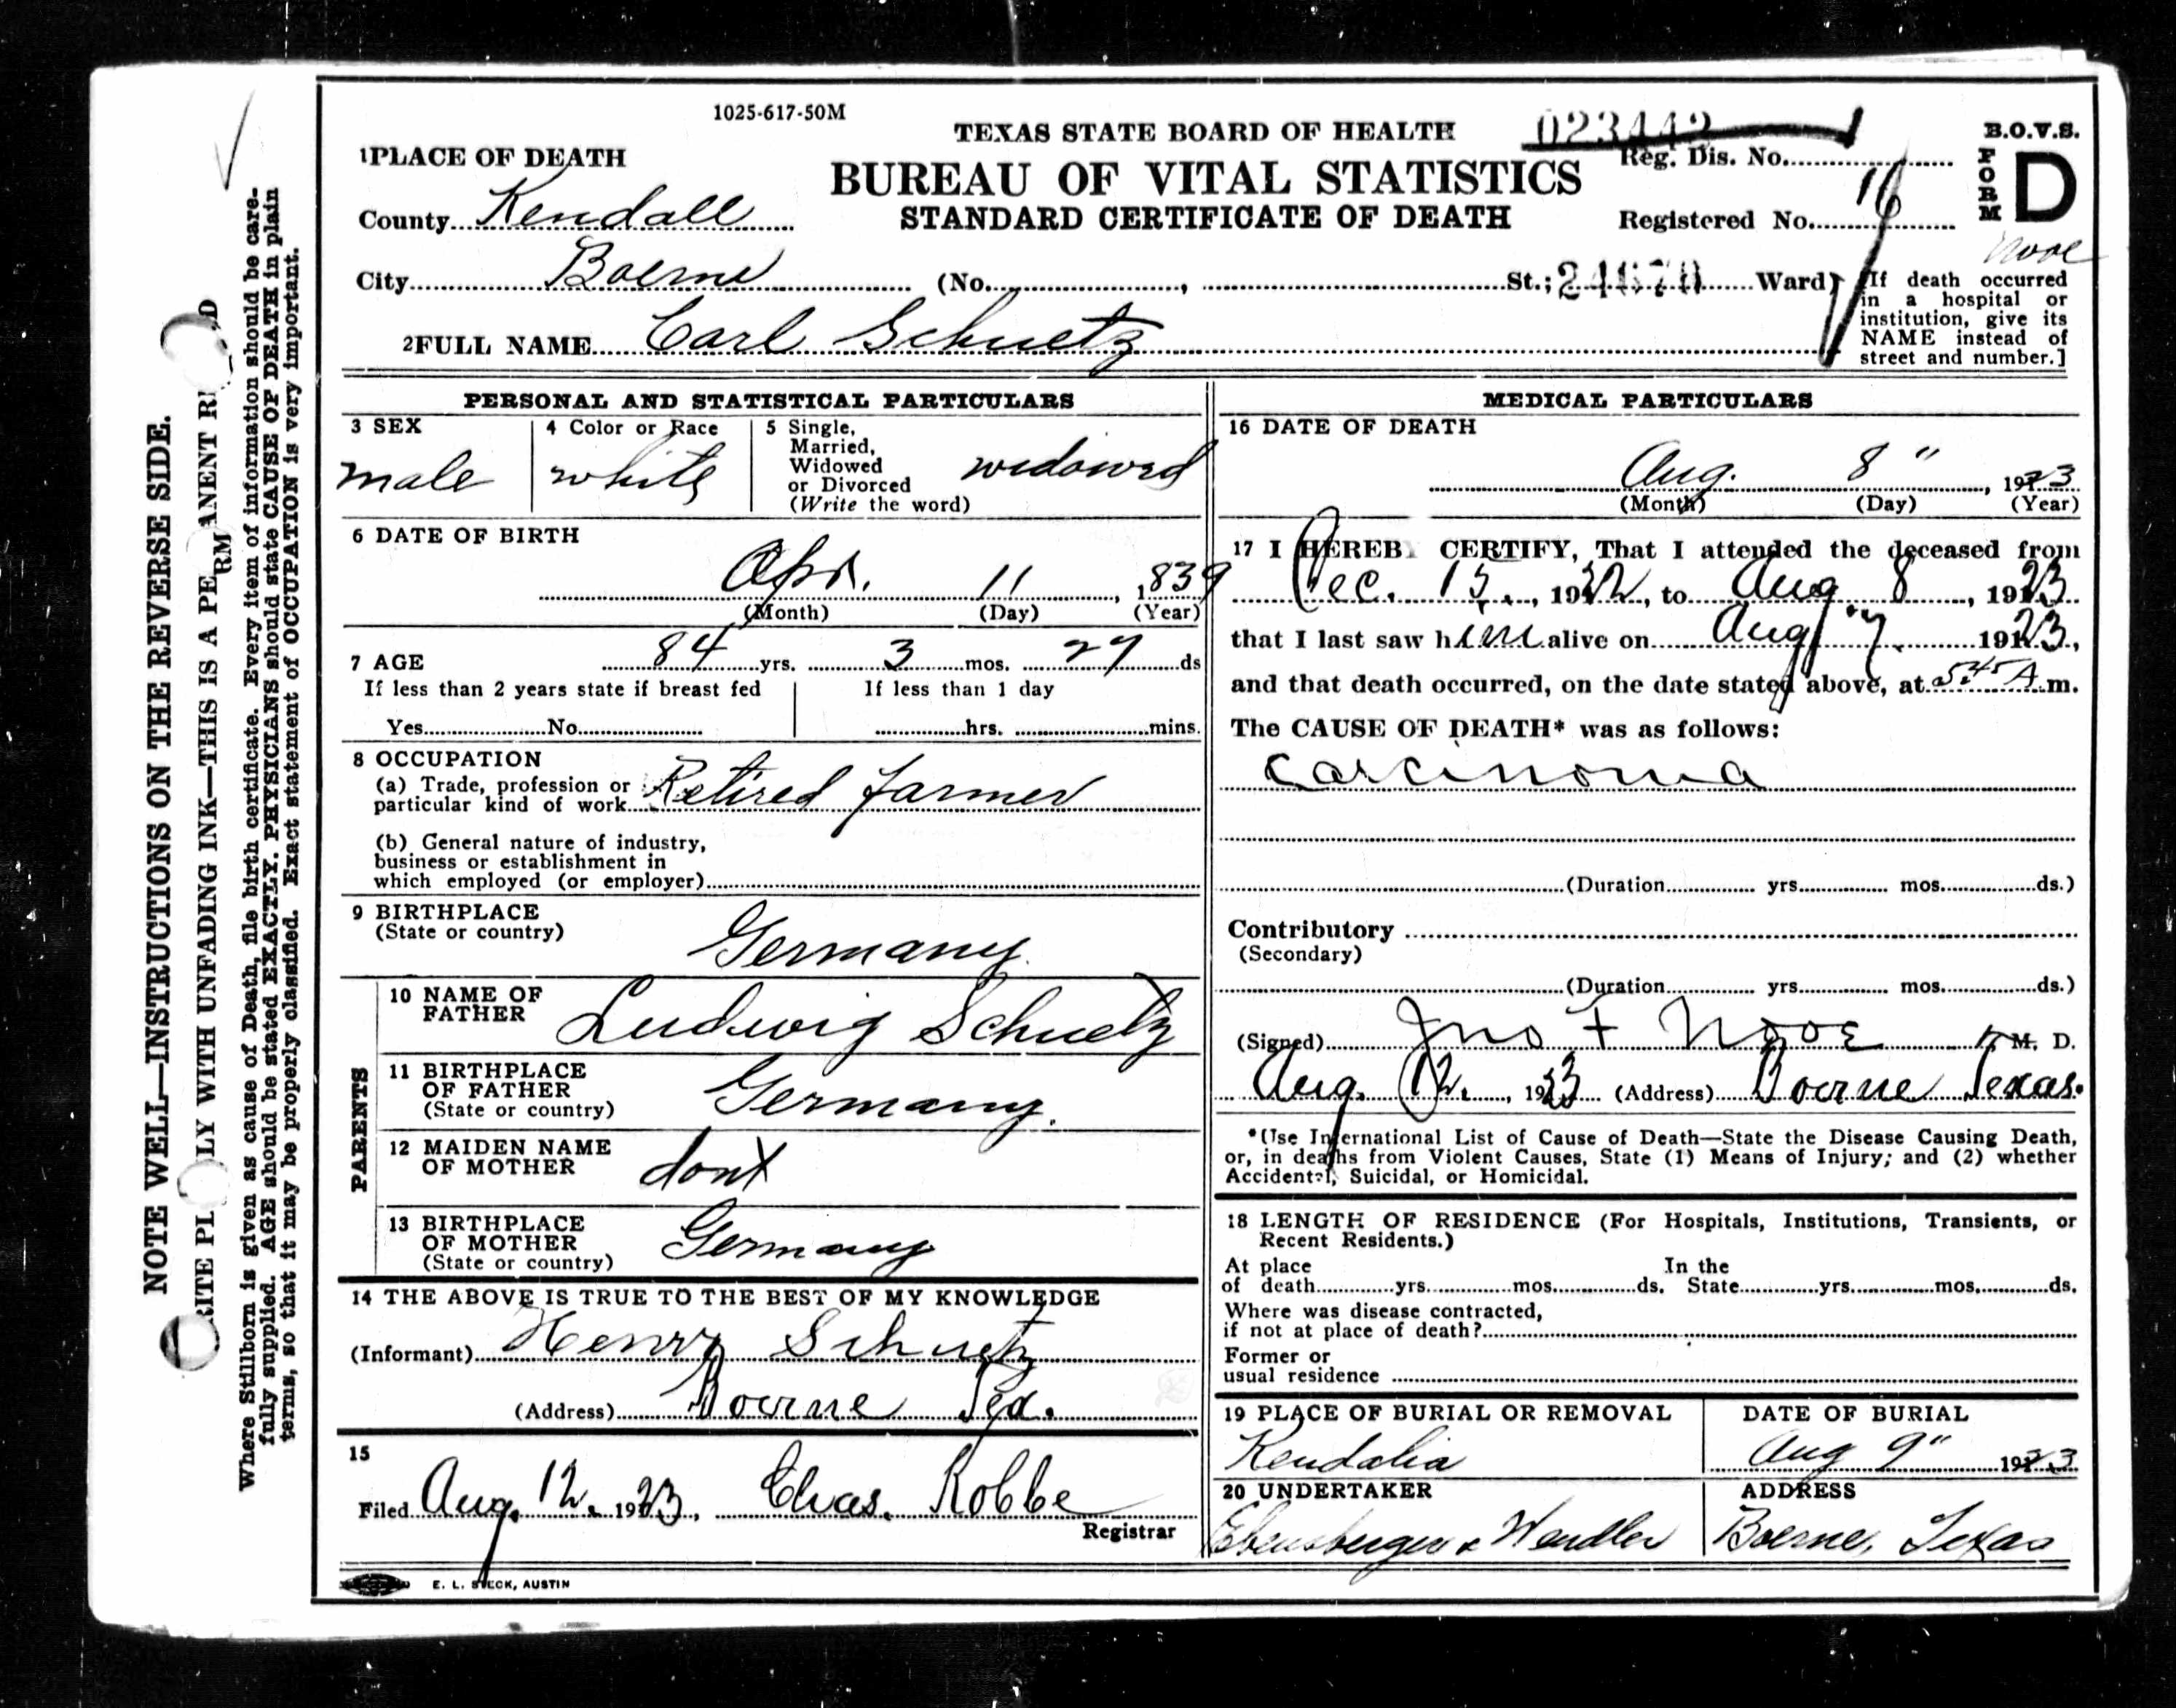 1025-617-50M
TEXAS STATE BOARD OF HEALTH
BUREAU OF VITAL STATISTICS
STANDARD CERTIFICATE OF DEATH
023442
Reg. Dis. No.
Registered No. 16
B.O.V.S.
FORM D
Nooe
1 PLACE OF DEATH
County Kendall
City Boerne (No. , St.; Ward)
[If death occurred
in a hospital or
institution, give its
NAME instead of
street and number.]
2 FULL NAME Carl Schuetz
PERSONAL AND STATISTICAL PARTICULARS
3 SEX
male
4 Color or Race
white
5 Single,
Married,
Widowed
or Divorced
(Write the word)
widowed
6 DATE OF BIRTH
Apr. 11, 1839
(Month) (Day) (Year)
7 AGE 84 yrs. 3 mos. 27 ds
If less than 2 years state if breast fed
Yes No
If less than 1 day
hrs. mins.
8 OCCUPATION
(a) Trade, profession or
particular kind of work Retired farmer
(b) General nature of industry,
business or establishment in
which employed (or employer)
9 BIRTHPLACE
(State or country) Germany
PARENTS
10 NAME OF
FATHER Ludwig Schuetz
11 BIRTHPLACE
OF FATHER
(State or country) Germany.
12 MAIDEN NAME
OF MOTHER dont
13 BIRTHPLACE
OF MOTHER
(State or country) Germany
14 THE ABOVE IS TRUE TO THE BEST OF MY KNOWLEDGE
(Informant) Henry Schuetz
(Address) Boerne Tex.
15
Filed Aug. 12. 1923, Chas. Robbe
Registrar
E. L. STECK, AUSTIN
MEDICAL PARTICULARS
16 DATE OF DEATH
Aug. 8", 1923
(Month) (Day) (Year)
17 I HEREB CERTIFY, That I attended the deceased from
Dec. 15., 1922, to Aug 8, 1923
that I last saw him alive on Aug 7 1923,
and that death occurred, on the date stated above, at 5.45 A.m.
The CAUSE OF DEATH* was as follows:
Carcinoma
(Duration yrs. mos. ds.)
Contributory
(Secondary)
(Duration yrs. mos. ds.)
(Signed) Jno F Nooe M. D.
Aug. 12., 1923 (Address) Boerne Texas.
*(Use International List of Cause of Death—State the Disease Causing Death,
or, in deaths from Violent Causes, State (1) Means of Injury; and (2) whether
Accidental, Suicidal, or Homicidal.
18 LENGTH OF RESIDENCE (For Hospitals, Institutions, Transients, or
Recent Residents.)
At place
of death yrs. mos. ds. In the State yrs. mos. ds.
Where was disease contracted,
if not at place of death?
Former or
usual residence
19 PLACE OF BURIAL OR REMOVAL
Kendalia
DATE OF BURIAL
Aug 9" 1923
20 UNDERTAKER
Ebensberger & Wendler
ADDRESS
Boerne, Texas
NOTE WELL—INSTRUCTIONS ON THE REVERSE SIDE.
RITE PL LY WITH UNFADING INK—THIS IS A PE RM ANENT R D
Where Stillborn is given as cause of Death, file birth certificate. Every item of information should be care-
fully supplied. AGE should be stated EXACTLY. PHYSICIANS should state CAUSE OF DEATH in plain
terms, so that it may be properly classified. Exact statement of OCCUPATION is very important.